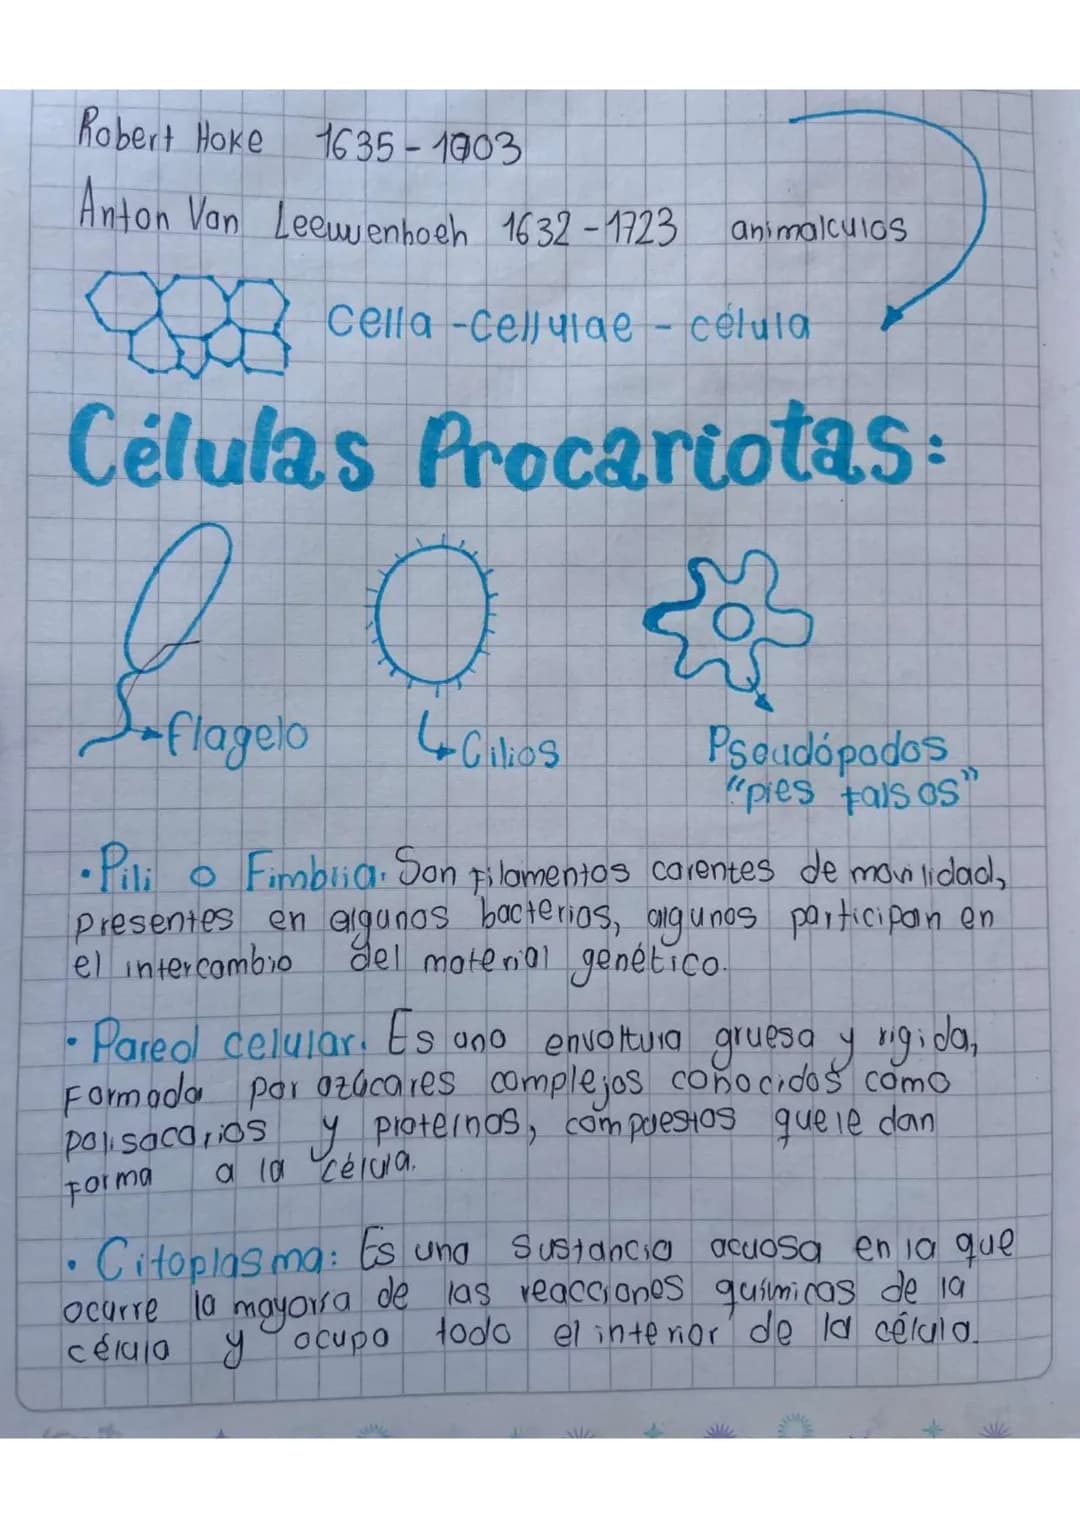 Robert Hoke 1635-1703
Anton Van Leeuwenhoeh 1632-1723 animalculos
cella - cellulae - célula
Células Procariotas:
flagelo
Cilios
Pseudópodos
"pies falsos"
• Pili o Fimbria. Son filamentos carentes de movilidad,
presentes en algunas bacterias, algunos participan en
el intercambio del material genético.
• Pared celular. Es una envoltura gruesa y rigida,
Formada por azúcares complejos conocidos como
polisacarios y proteinas, compuestos que le dan
forma a la célula.
• Citoplasma: Es una sustancia acuosa en la que
ocurre la mayoría de las reacciones químicas de la
célula y ocupa todo el interior de la célula.